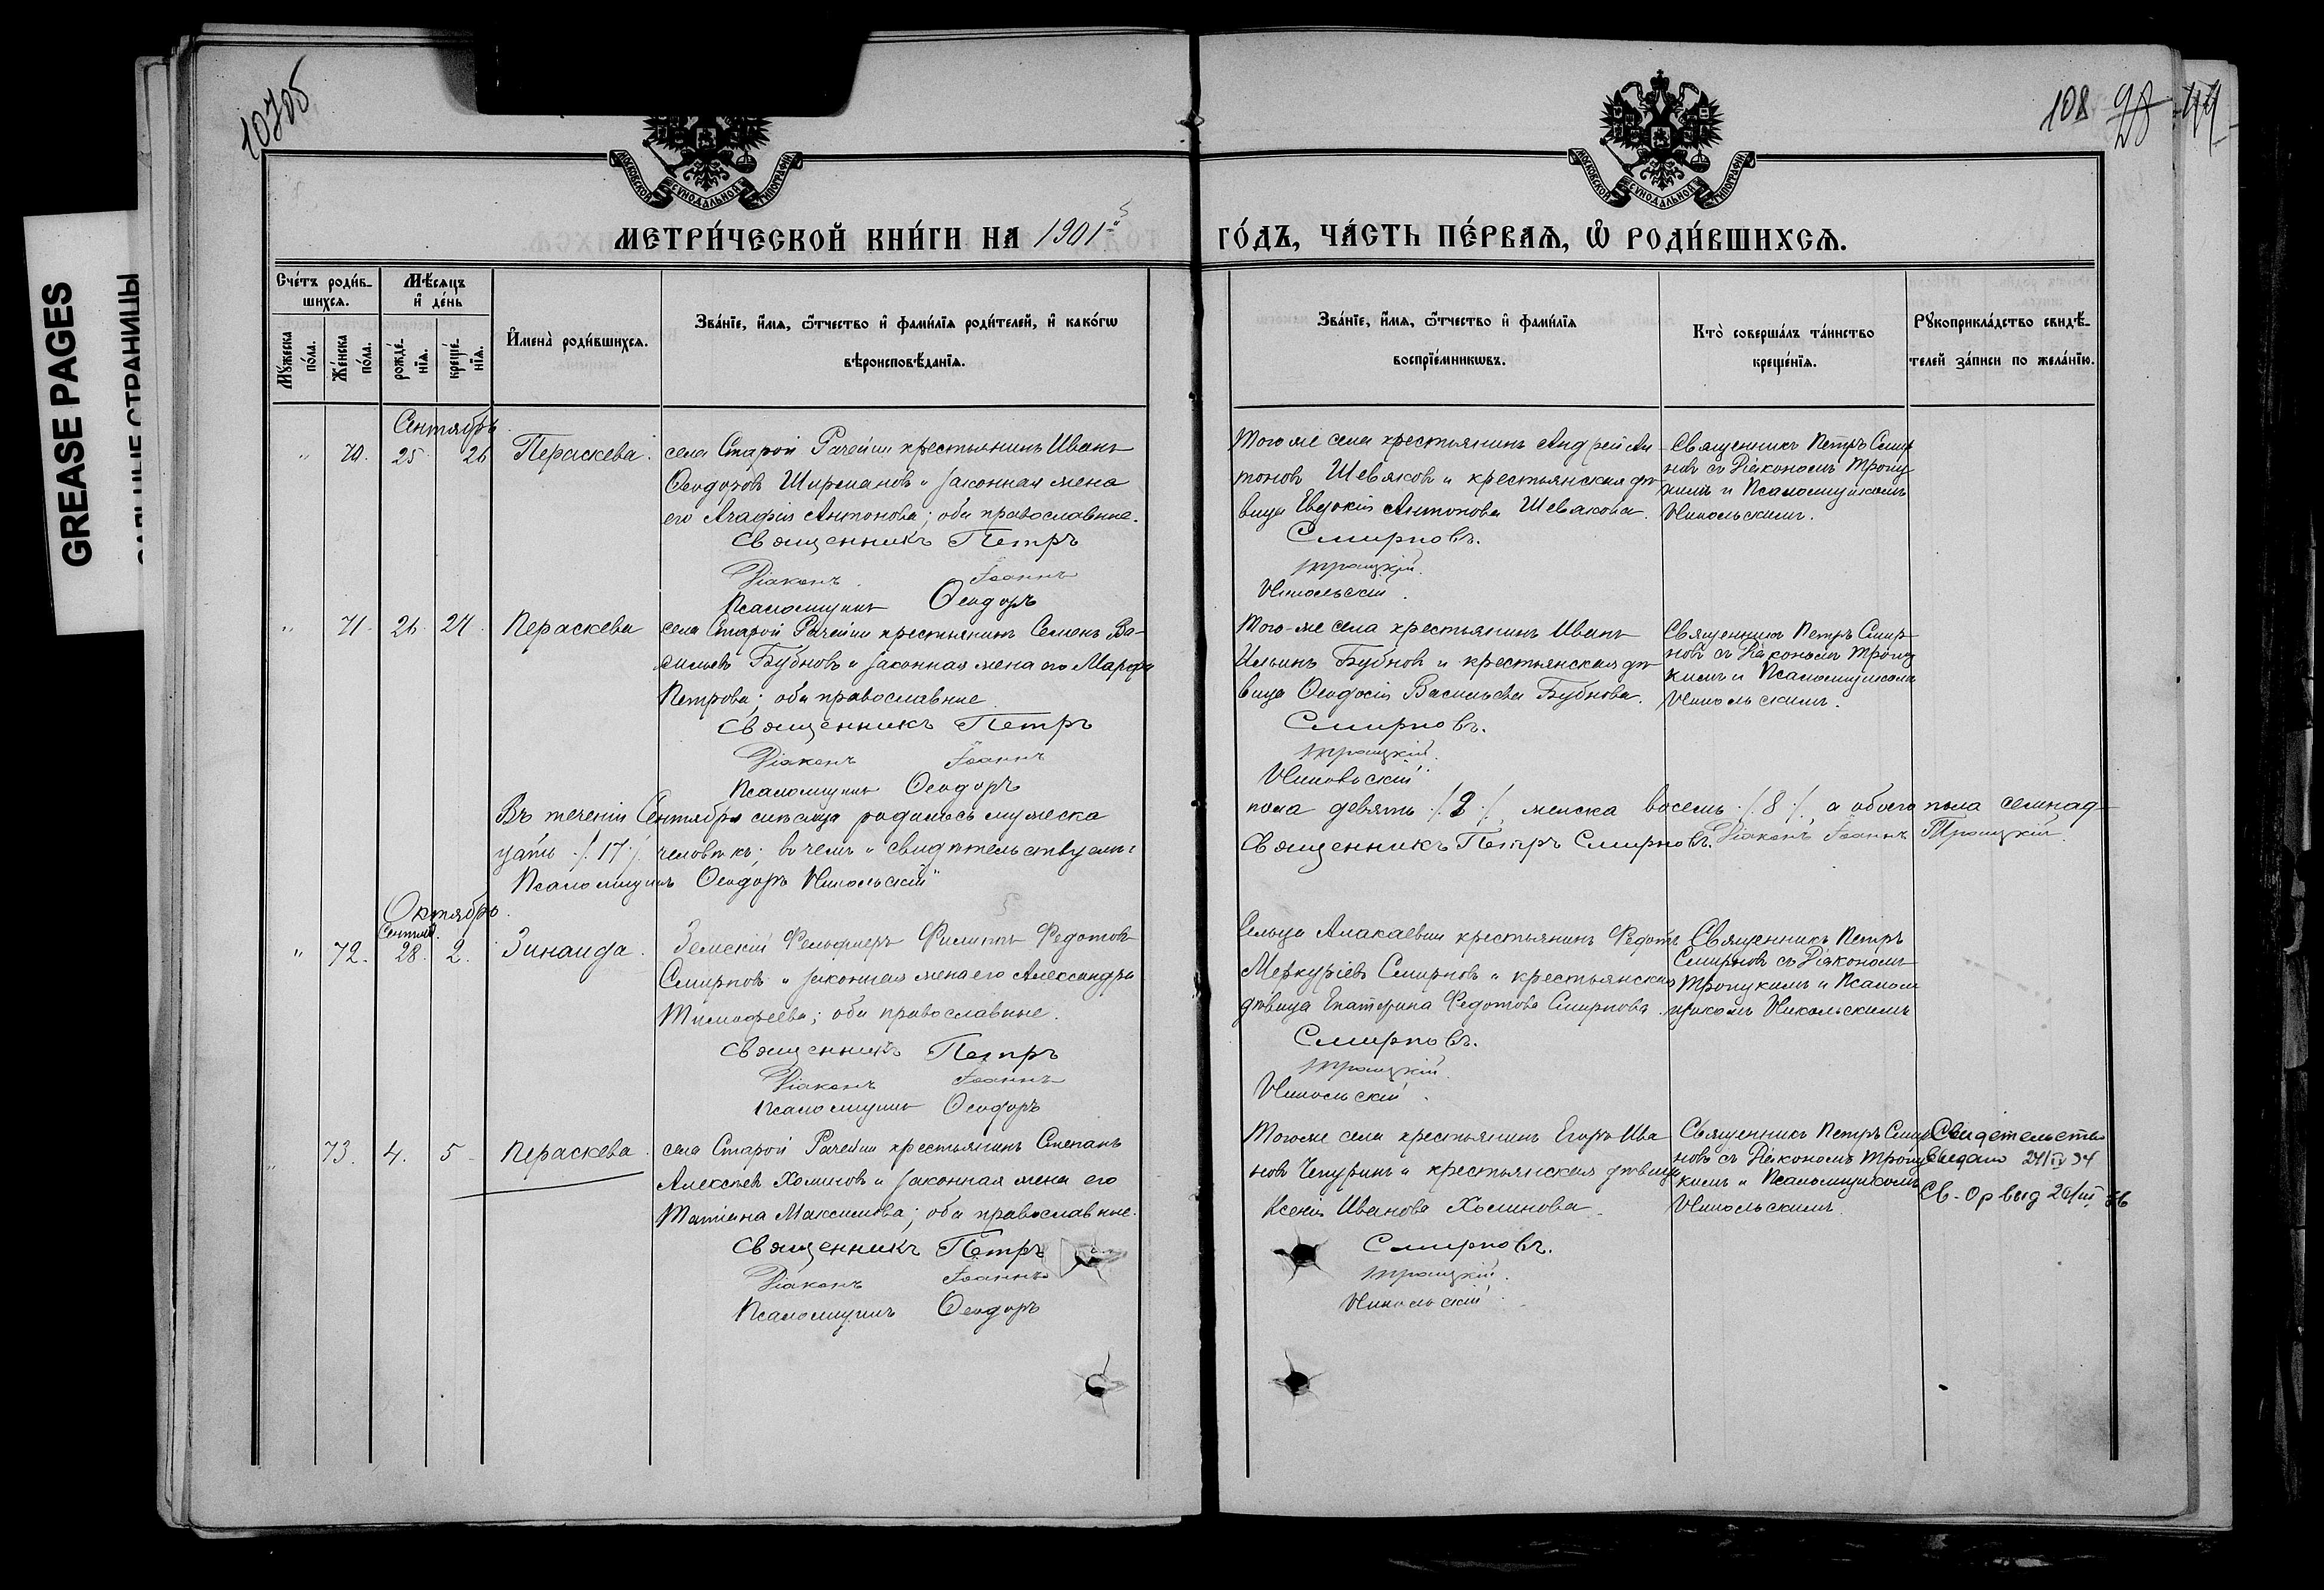 GREASE PAGES
1070б
108 28 44
МОСКОВСКОЙ СѴНОДАЛЬНОЙ ТИПОГРАФІИ
МОСКОВСКОЙ СѴНОДАЛЬНОЙ ТИПОГРАФІИ
МЕТРИ́ЧЕСКОЙ КНИ́ГИ НА 1901й
ГО́ДЪ, ЧА́СТЬ ПЕ́РВАЯ, Ѡ РОДИ́ВШИХСЯ.
Сче́тъ роди́в-
шихся.
Мѣсяцъ
и де́нь
Мꙋжеска по́ла.
Же́нска по́ла.
рожде́-нїя.
креще́-нїя.
И҆мена̀ роди́вшихся.
Зва́нїе, и҆́мя, ѻ҆́тчество и҆ фами́лїя роди́телей, и҆ како́гѡ
вѣроисповѣ́данїя.
Зва́нїе, и҆́мя, ѻ҆́тчество и҆ фами́лїя
воспрїе́мникѡвъ.
Кто̀ соверша́лъ та́инство
креще́нїя.
Рꙋкоприкла́дство свидѣ́-
телей за́писи по жела́нїю.
Сентябрь.
" 70. 25 26 Пераскева.
села Старой Рачейки крестьянинъ Иванъ
Ѳеодоровъ Ширмановъ и законная жена
его Агафія Антонова; оба православные.
Священникъ Петръ
Діаконъ Іоаннъ
Псаломщикъ Ѳеодоръ
Того же села крестьянинъ Андрей Ан
тоновъ Шевяковъ и крестьянская дѣ-
вица Евдокія Антонова Шевякова.
Смирновъ.
Троицкій.
Никольскій.
Священникъ Петръ Смир
новъ съ Діакономъ Троиц
кимъ и Псаломщикомъ
Никольскимъ.
" 71. 26. 27. Пераскева
села Старой Рачейки крестьянинъ Семенъ Ва-
сильевъ Бубновъ и законная жена его Марфа
Петрова; оба православные.
Священникъ Петръ
Діаконъ Іоаннъ
Псаломщикъ Ѳеодоръ
Того-же села крестьянинъ Иванъ
Ильинъ Бубновъ и крестьянская дѣ-
вица Ѳеодосія Васильева Бубнова.
Смирновъ.
Троицкій.
Никольскій.
Священникъ Петръ Смир-
новъ съ Діакономъ Троиц
кимъ и Псаломщикомъ
Никольскимъ.
Въ теченіи Сентября мѣсяца родилось мужеска
пола девять ./.9./., женска восемь ./.8./., а обоего пола семнад-
цать ./.17./. человѣкъ; въ чемъ и свидѣтельствуемъ:
Священникъ Петръ Смирновъ. Діаконъ Іоаннъ Троицкій.
Псаломщикъ Ѳеодоръ Никольскій"
Октябрь.
Сентяб.
" 72. 28. 2. Зинаида.
Земскій Фельдшеръ Филиппъ Федотовъ
Смирновъ и законная жена его Александра
Тимофеева; оба православные.
Священникъ Петръ
Діаконъ Іоаннъ
Псаломщикъ Ѳеодоръ
Сельца Алакаевки крестьянинъ Федотъ
Меркуріевъ Смирновъ и крестьянская
дѣвица Екатерина Федотова Смирнова.
Смирновъ.
Троицкій.
Никольскій.
Священникъ Петръ
Смирновъ съ Діакономъ
Троицкимъ и Псалом
щикомъ Никольскимъ
" 73. 4. 5 Пераскева.
села Старой Рачейки крестьянинъ Степанъ
Алексѣевъ Холиновъ и законная жена его
Татіана Максимова; оба православные.
Священникъ Петръ
Діаконъ Іоаннъ
Псаломщикъ Ѳеодоръ
Тогоже села крестьянинъ Егоръ Ива
новъ Чепуринъ и крестьянская дѣвица
Ксенія Иванова Холинова.
Смирновъ.
Троицкій.
Никольскій.
Священникъ Петръ Смир
новъ съ Діакономъ Троиц
кимъ и Псаломщикомъ
Никольскимъ.
Свидетельство
выдано 24/IV 34
Св-о р выд 26/III 36